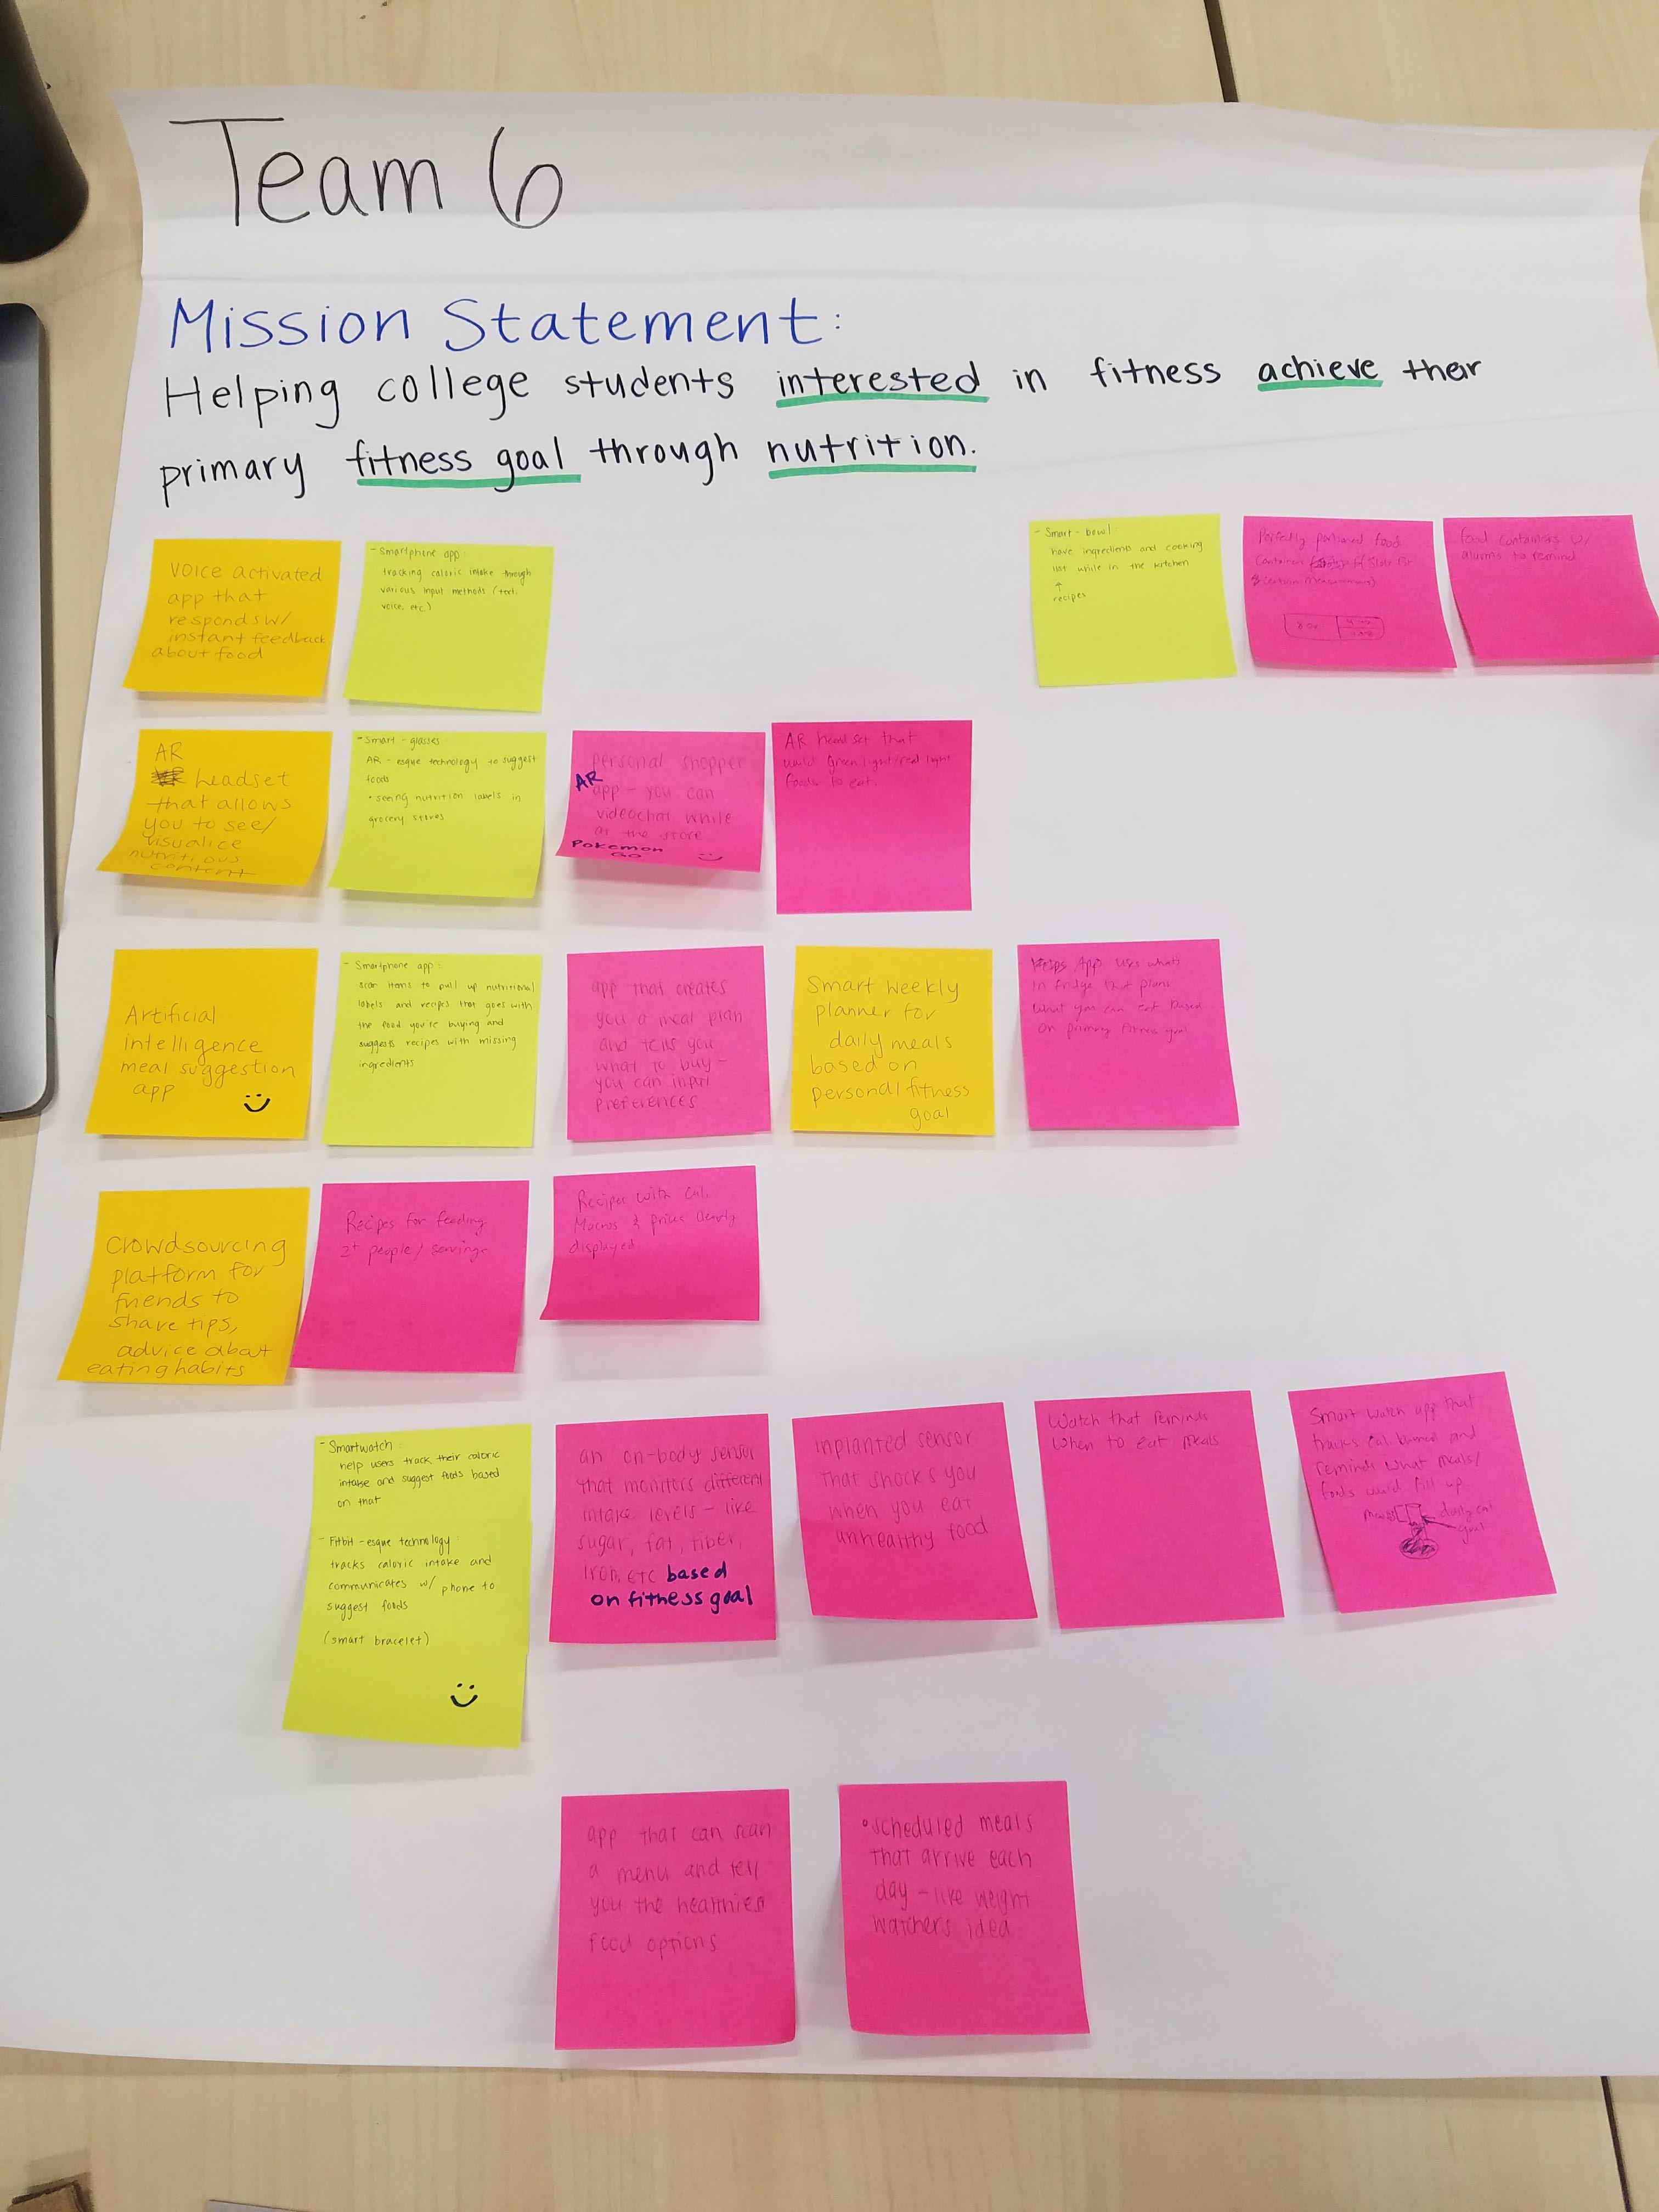 Team 6
Mission Statement:
Helping college students interested in fitness achieve their
primary fitness goal through nutrition.
voice activated
app that
responds w/
instant feedback
about food
- Smartphone app:
tracking caloric intake through
various input methods (text,
voice, etc.)
- Smart-bowl:
have ingredients and cooking
list while in the kitchen
↑
recipes
Perfectly portioned food
container
food containers w/
alarms to remind
AR
headset
that allows
you to see/
visualize
nutritious
content
- Smart-glasses:
AR-esque technology to suggest
foods
• seeing nutrition labels in
grocery stores
personal shopper
AR app - you can
videochat while
at the store
Pokemon
Go
AR headset that
would green light/red light
foods to eat
Artificial
intelligence
meal suggestion
app
- Smartphone app:
scan items to pull up nutritional
labels and recipes that goes with
the food you're buying and
suggests recipes with missing
ingredients
app that creates
you a meal plan
and tells you
what to buy -
you can input
preferences
Smart weekly
planner for
daily meals
based on
personal fitness
goal
App uses what's
in fridge that plans
what you can eat based
on primary fitness goal
Crowdsourcing
platform for
friends to
share tips,
advice about
eating habits
Recipes for feeding
2+ people/servings
Recipes with Cal,
Macros & prices clearly
displayed
- Smartwatch:
help users track their caloric
intake and suggest foods based
on that
- Fitbit-esque technology:
tracks caloric intake and
communicates w/ phone to
suggest foods
(smart bracelet)
an on-body sensor
that monitors different
intake levels - like
sugar, fat, fiber,
iron, etc based
on fitness goal
inplanted sensor
that shocks you
when you eat
unhealthy food
Watch that reminds
when to eat meals
Smart watch app that
tracks cal. burned and
reminds what meals/
foods would fill up
app that can scan
a menu and tell
you the healthiest
food options
• scheduled meals
that arrive each
day - like weight
watchers idea